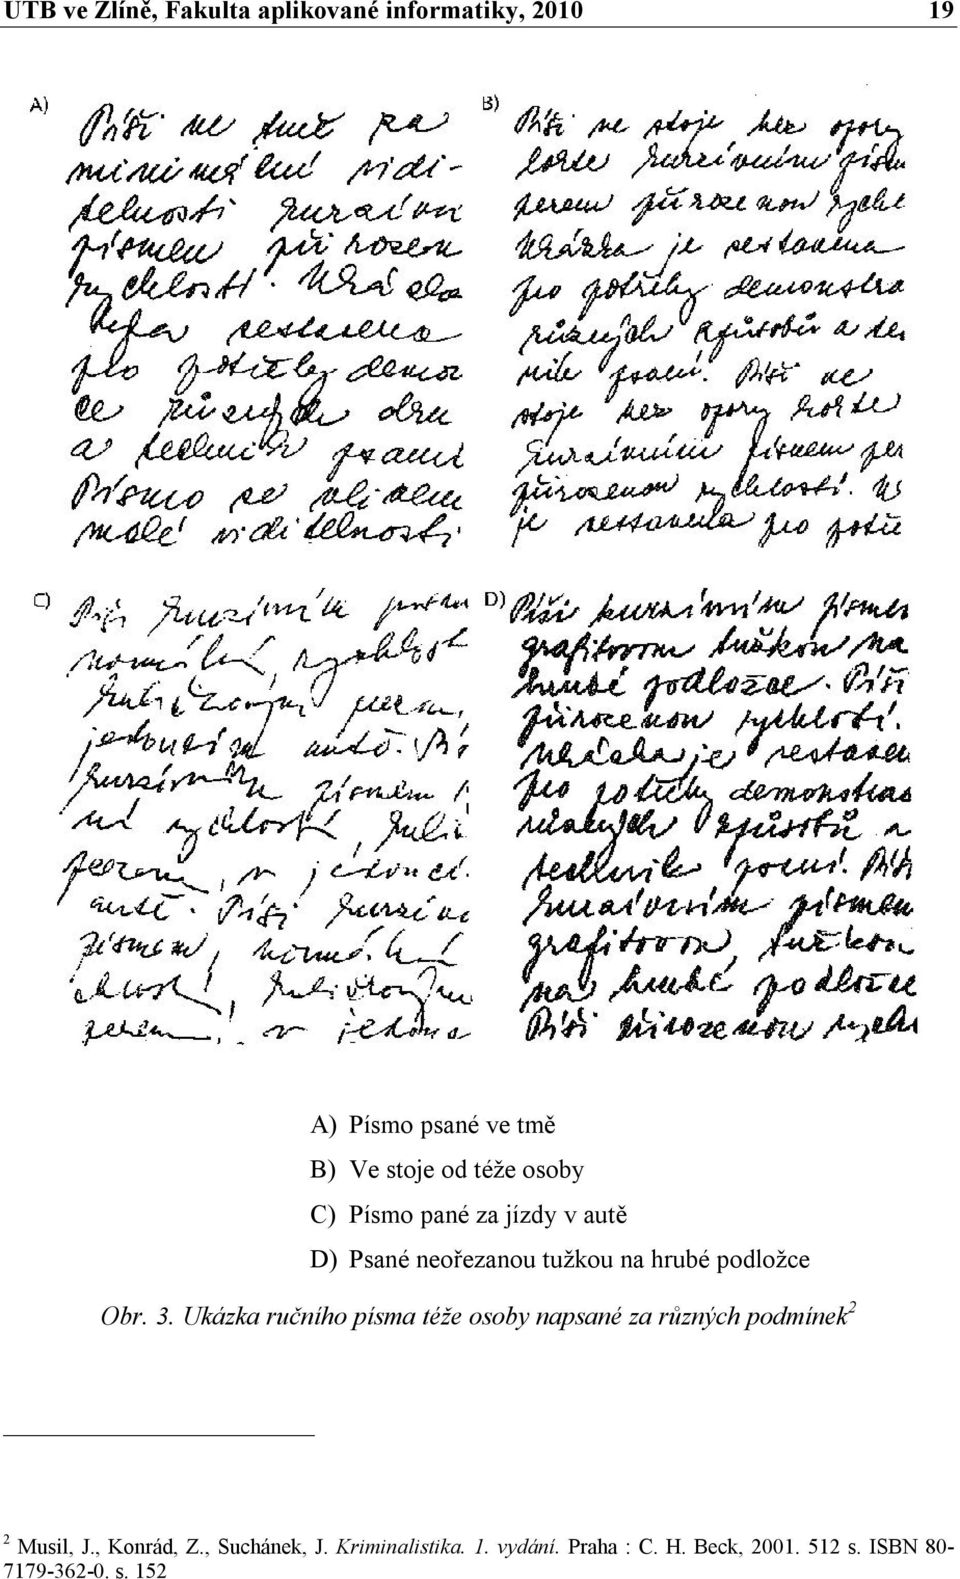 UTB ve Zlíně, Fakulta aplikované informatiky, 2010 19
A)
Píši ve tmě za
minimální vidi-
telnosti kurzívn
písmem přirozen
rychlostí. Ukázka
byla sestavena
pro potřeby demon
ce různých dru
a technik psaní
Písmo se vlivem
malé viditelnosti
B)
Píši ve stoje bez opory
lokte kurzívním písm
perem přirozenou rychl
Ukázka je sestavena
pro potřeby demonstra
různých způsobů a te
nik psaní. Píši ve
stoje bez opory lokte
kurzívním písmem per
přirozenou rychlostí. U
je sestavena pro potř
C)
Píši kurzívním
normální, rychlost
perem,
jedoucím autě. Pí
kurzívním písmem
ní rychlostí, kuli
perem, v jedoucí
autě. Píši kurzívn
písmem, normální
chlostí,
perem, v jedouc
D)
Píši kurzívním písmem
grafitovou tužkou na
hrubé podložce. Píši
přirozenou rychlostí.
Ukázka je sestaven
pro potřeby demonstrac
různých způsobů a
technik psaní. Píši
kurzívním písmem
grafitovou, tužkou
na hrubé podložce
Píši přirozenou rychl
A) Písmo psané ve tmě
B) Ve stoje od téže osoby
C) Písmo pané za jízdy v autě
D) Psané neořezanou tužkou na hrubé podložce
Obr. 3. Ukázka ručního písma téže osoby napsané za různých podmínek²
² Musil, J., Konrád, Z., Suchánek, J. Kriminalistika. 1. vydání. Praha : C. H. Beck, 2001. 512 s. ISBN 80-
7179-362-0. s. 152